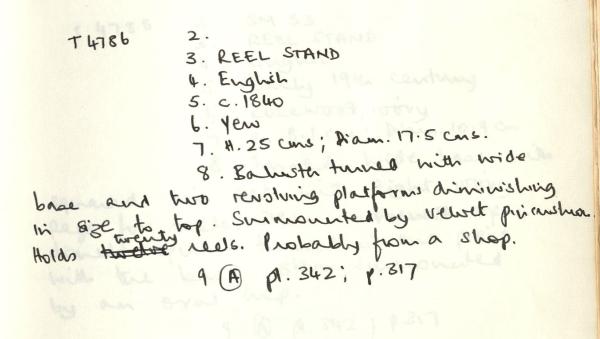 T4786 2.
3. REEL STAND
4. English
5. c.1840
6. Yew
7. H. 25 cms; Diam. 17.5 cms.
8. Baluster turned with wide
base and two revolving platforms diminishing
in size to top. Surmounted by velvet pincushion.
Holds twelve twenty reels. Probably from a shop.
9 (A) pl. 342; p.317